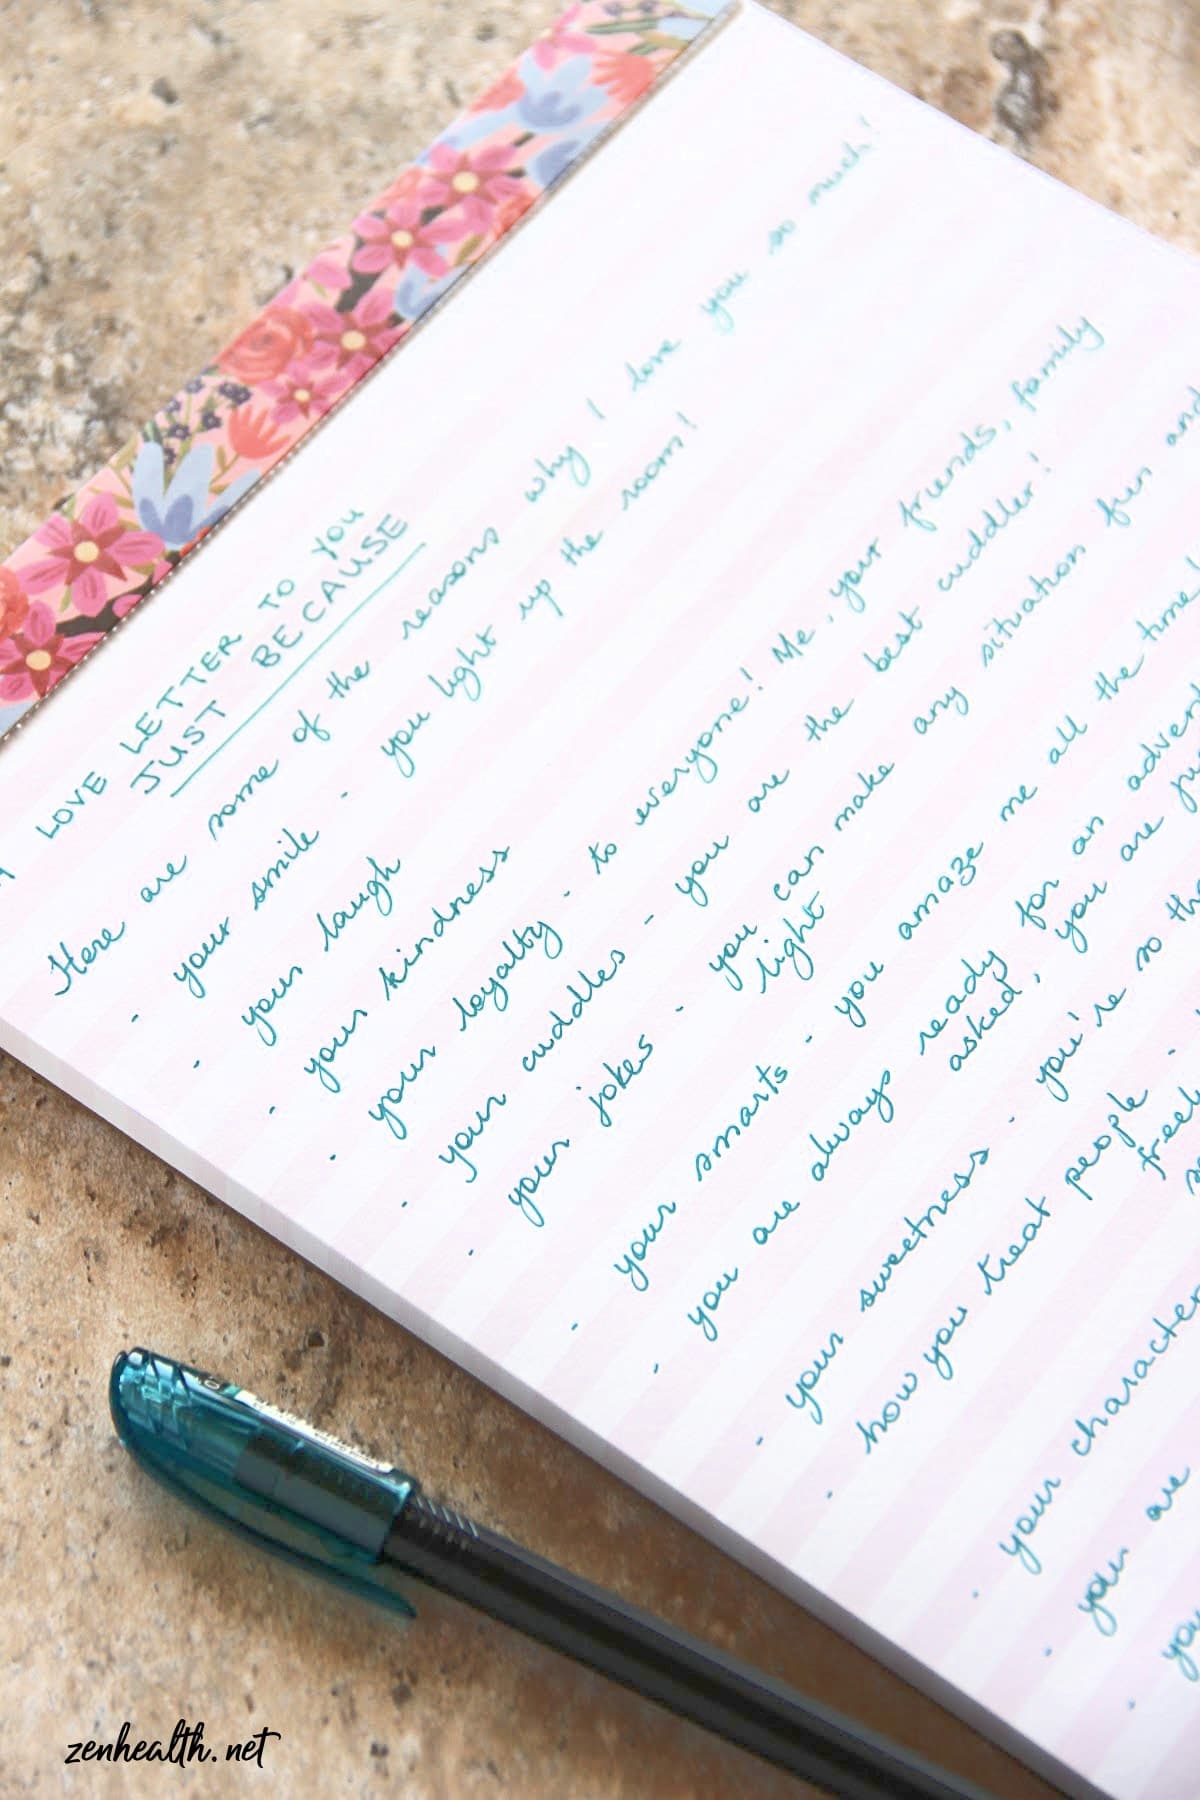 LOVE LETTER TO YOU
JUST BECAUSE
Here are some of the reasons why I love you so much!
- your smile - you light up the room!
- your laugh
- your kindness
- your loyalty - to everyone! Me, your friends, family
- your cuddles - you are the best cuddler!
- your jokes - you can make any situation fun and
light
- your smarts - you amaze me all the time
- you are always ready for an
asked, you are
- your sweetness - you're so
- how you treat people -
- your character
- you are
zenhealth.net